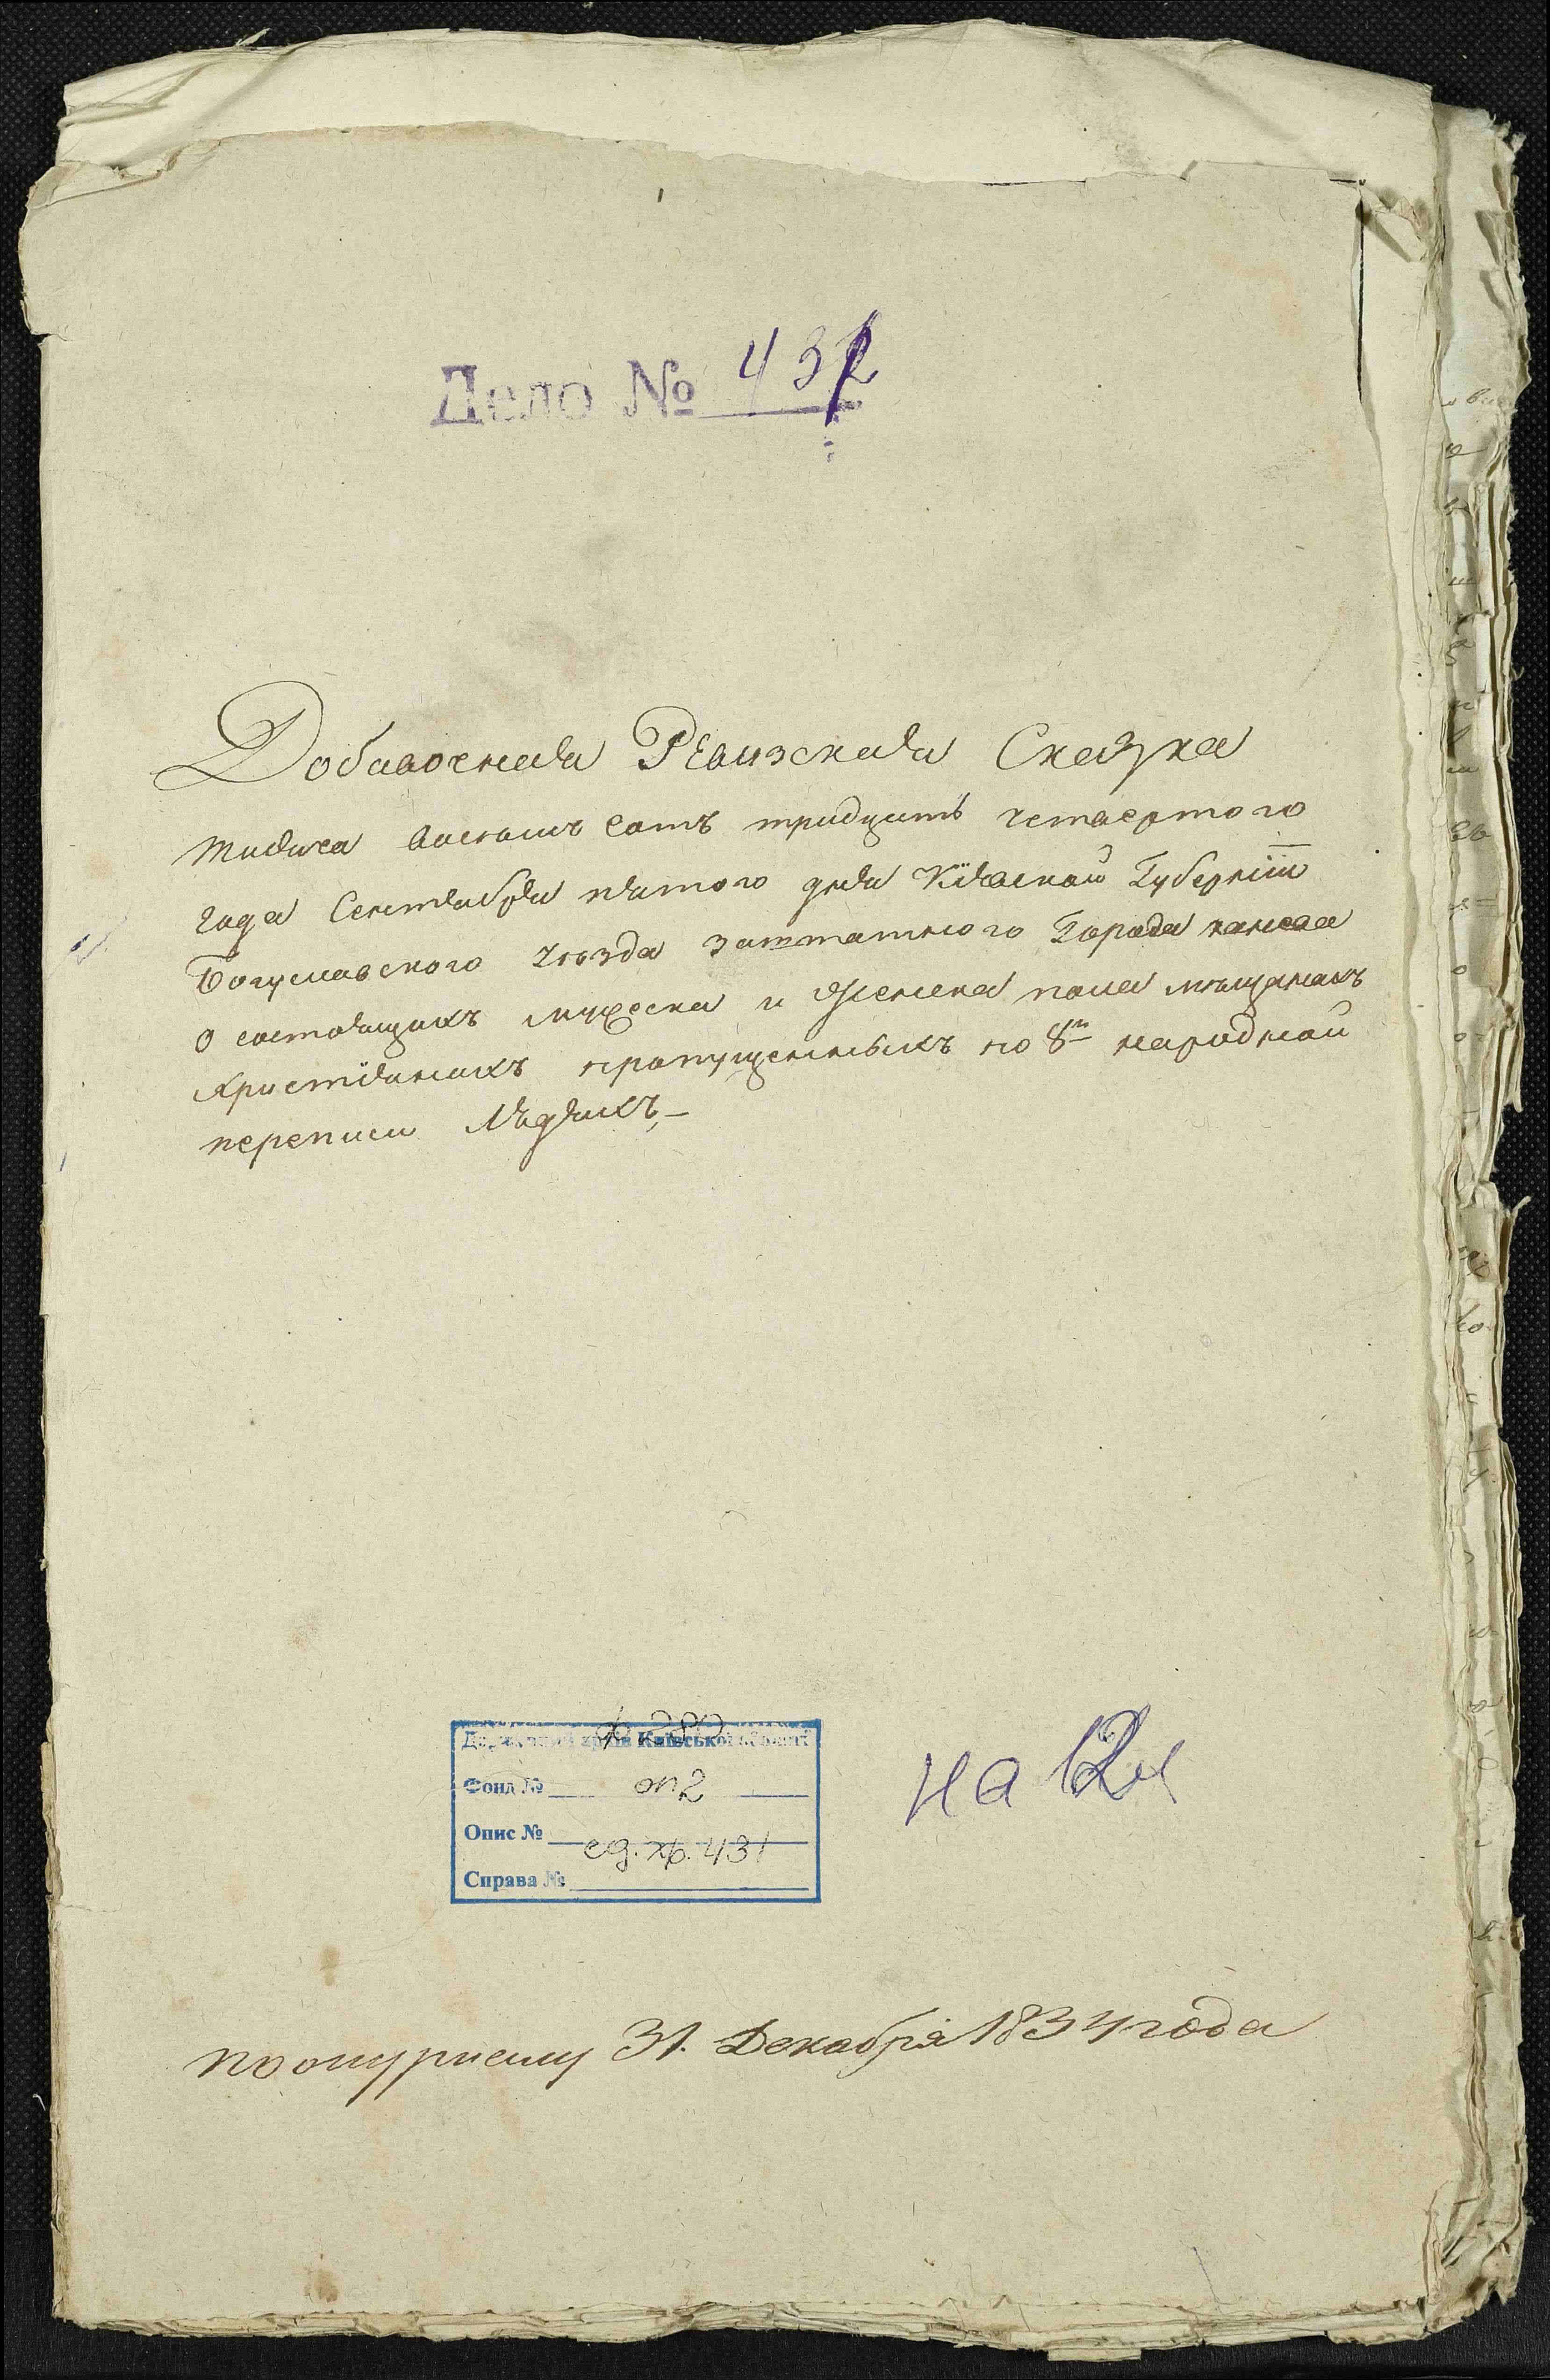 Дело № 431
Добавочная Ревизская Сказка
тысяча восемь сотъ тридцать четвертого
года Сентября пятого дня Кіевской Губерніи
Богуславского уѣзда заштатного Города Канева
о состоящихъ мужеска и женска пола мѣщанахъ
христіянахъ пропущенныхъ по 8й народной
переписи
ф. 280
Державний архів Київської області
Фонд № оп 2
Опис № ед. хр. 431
Справа №
на 12 л
31. Декабря 1834 года